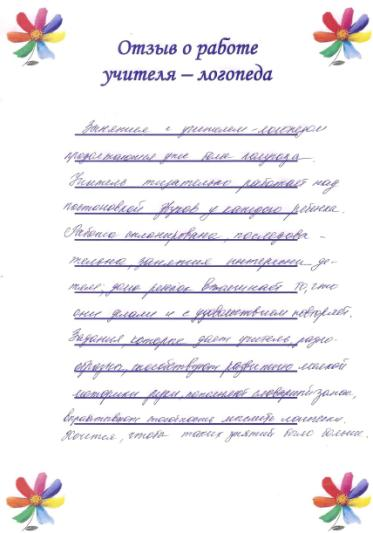 Отзыв о работе
учителя – логопеда
Занятия с учителем-логопедом
продолжаются уже более полугода.
Учитель тщательно работает над
постановкой звуков у каждого ребенка.
Работа спланирована, последова-
тельна, занятия интересны де-
тям, дома ребенок вспоминает то, что
они делали и с удовольствием повторяет.
Задания которые дает учитель, разно-
образны, способствуют развитию мелкой
моторики руки, пополняют словарный запас,
способности мыслить логически.
Хочется, чтобы таких занятий было больше.